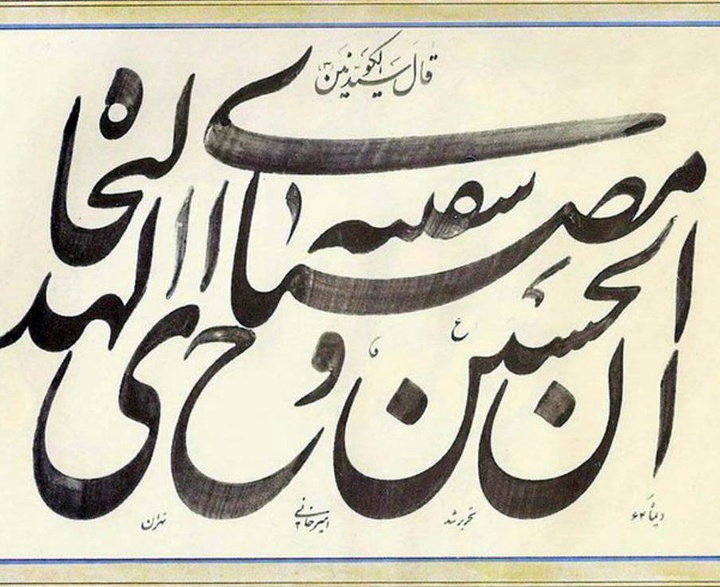 قال سید الکونین (ص)
ان الحسین ع مصباح الهدی و سفینه النجاة
دیماه ۶۴ تحریر شد امیرخانی تهران